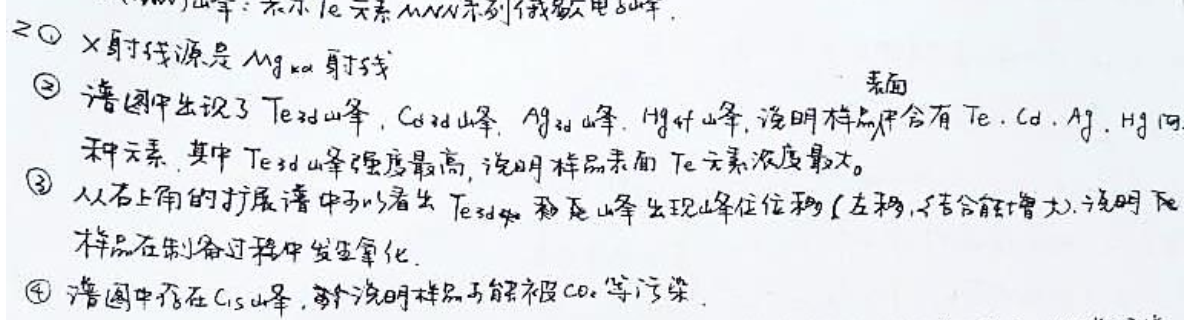 (MNN)峰:表示Te元素MNN系列俄歇电子峰.
2① X射线源是MgKα射线
表面
② 谱图中出现了Te3d峰,Cd3d峰,Ag3d峰,Hg4f峰,说明样品中含有Te、Cd、Ag、Hg四
种元素.其中Te3d峰强度最高,说明样品表面Te元素浓度最大。
③ 从右上角的扩展谱中可以看出Te3d 峰出现峰位位移(左移,结合能增大).说明
样品在制备过程中发生氧化.
④ 谱图中存在C1s峰,说明样品可能被CO2等污染.